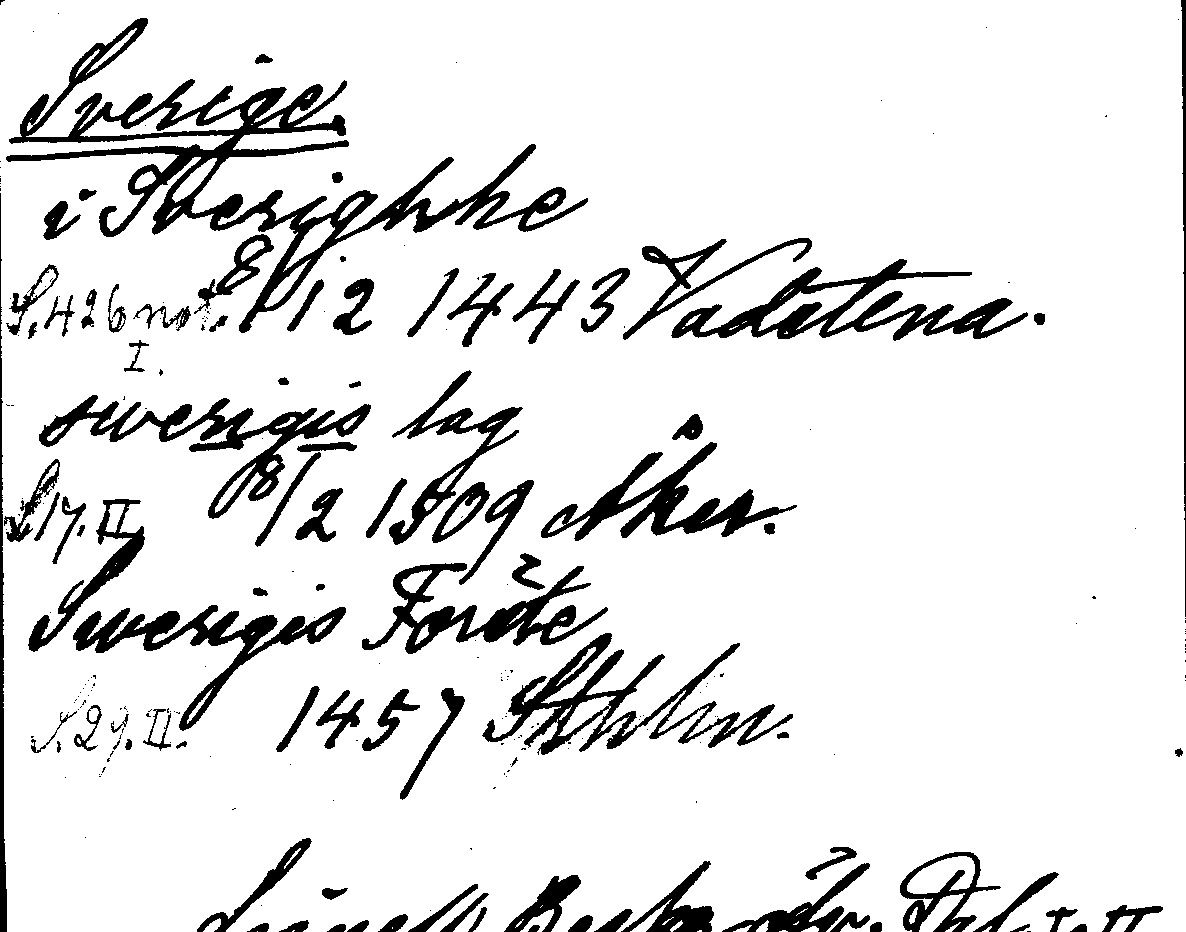 Sverige.
i Sverighke
S. 426 not. 8/12 1443 Vadstena.
I.
swerigis lag
S. 17. II 18/2 1509 Åker.
Swerigis
S. 29. II. 1457 Sthlm.